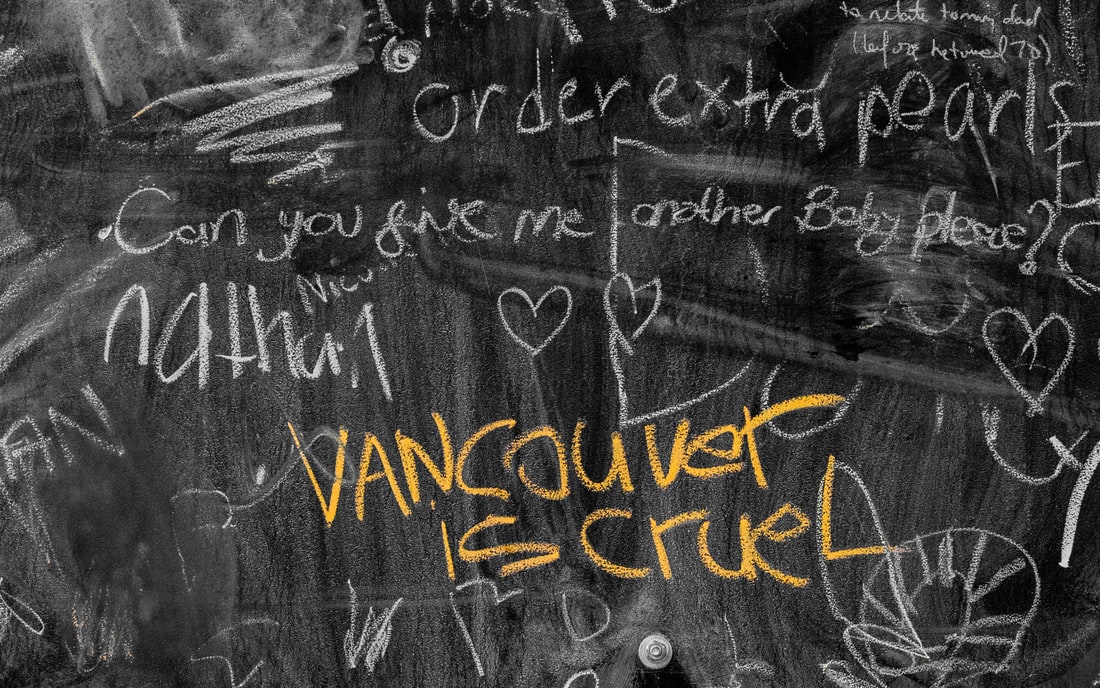 to relate to my dad
(before he turned 70)
order extra pearls
Can you give me another Baby please?
Nic
AN
VANCOUVer
is cruEL